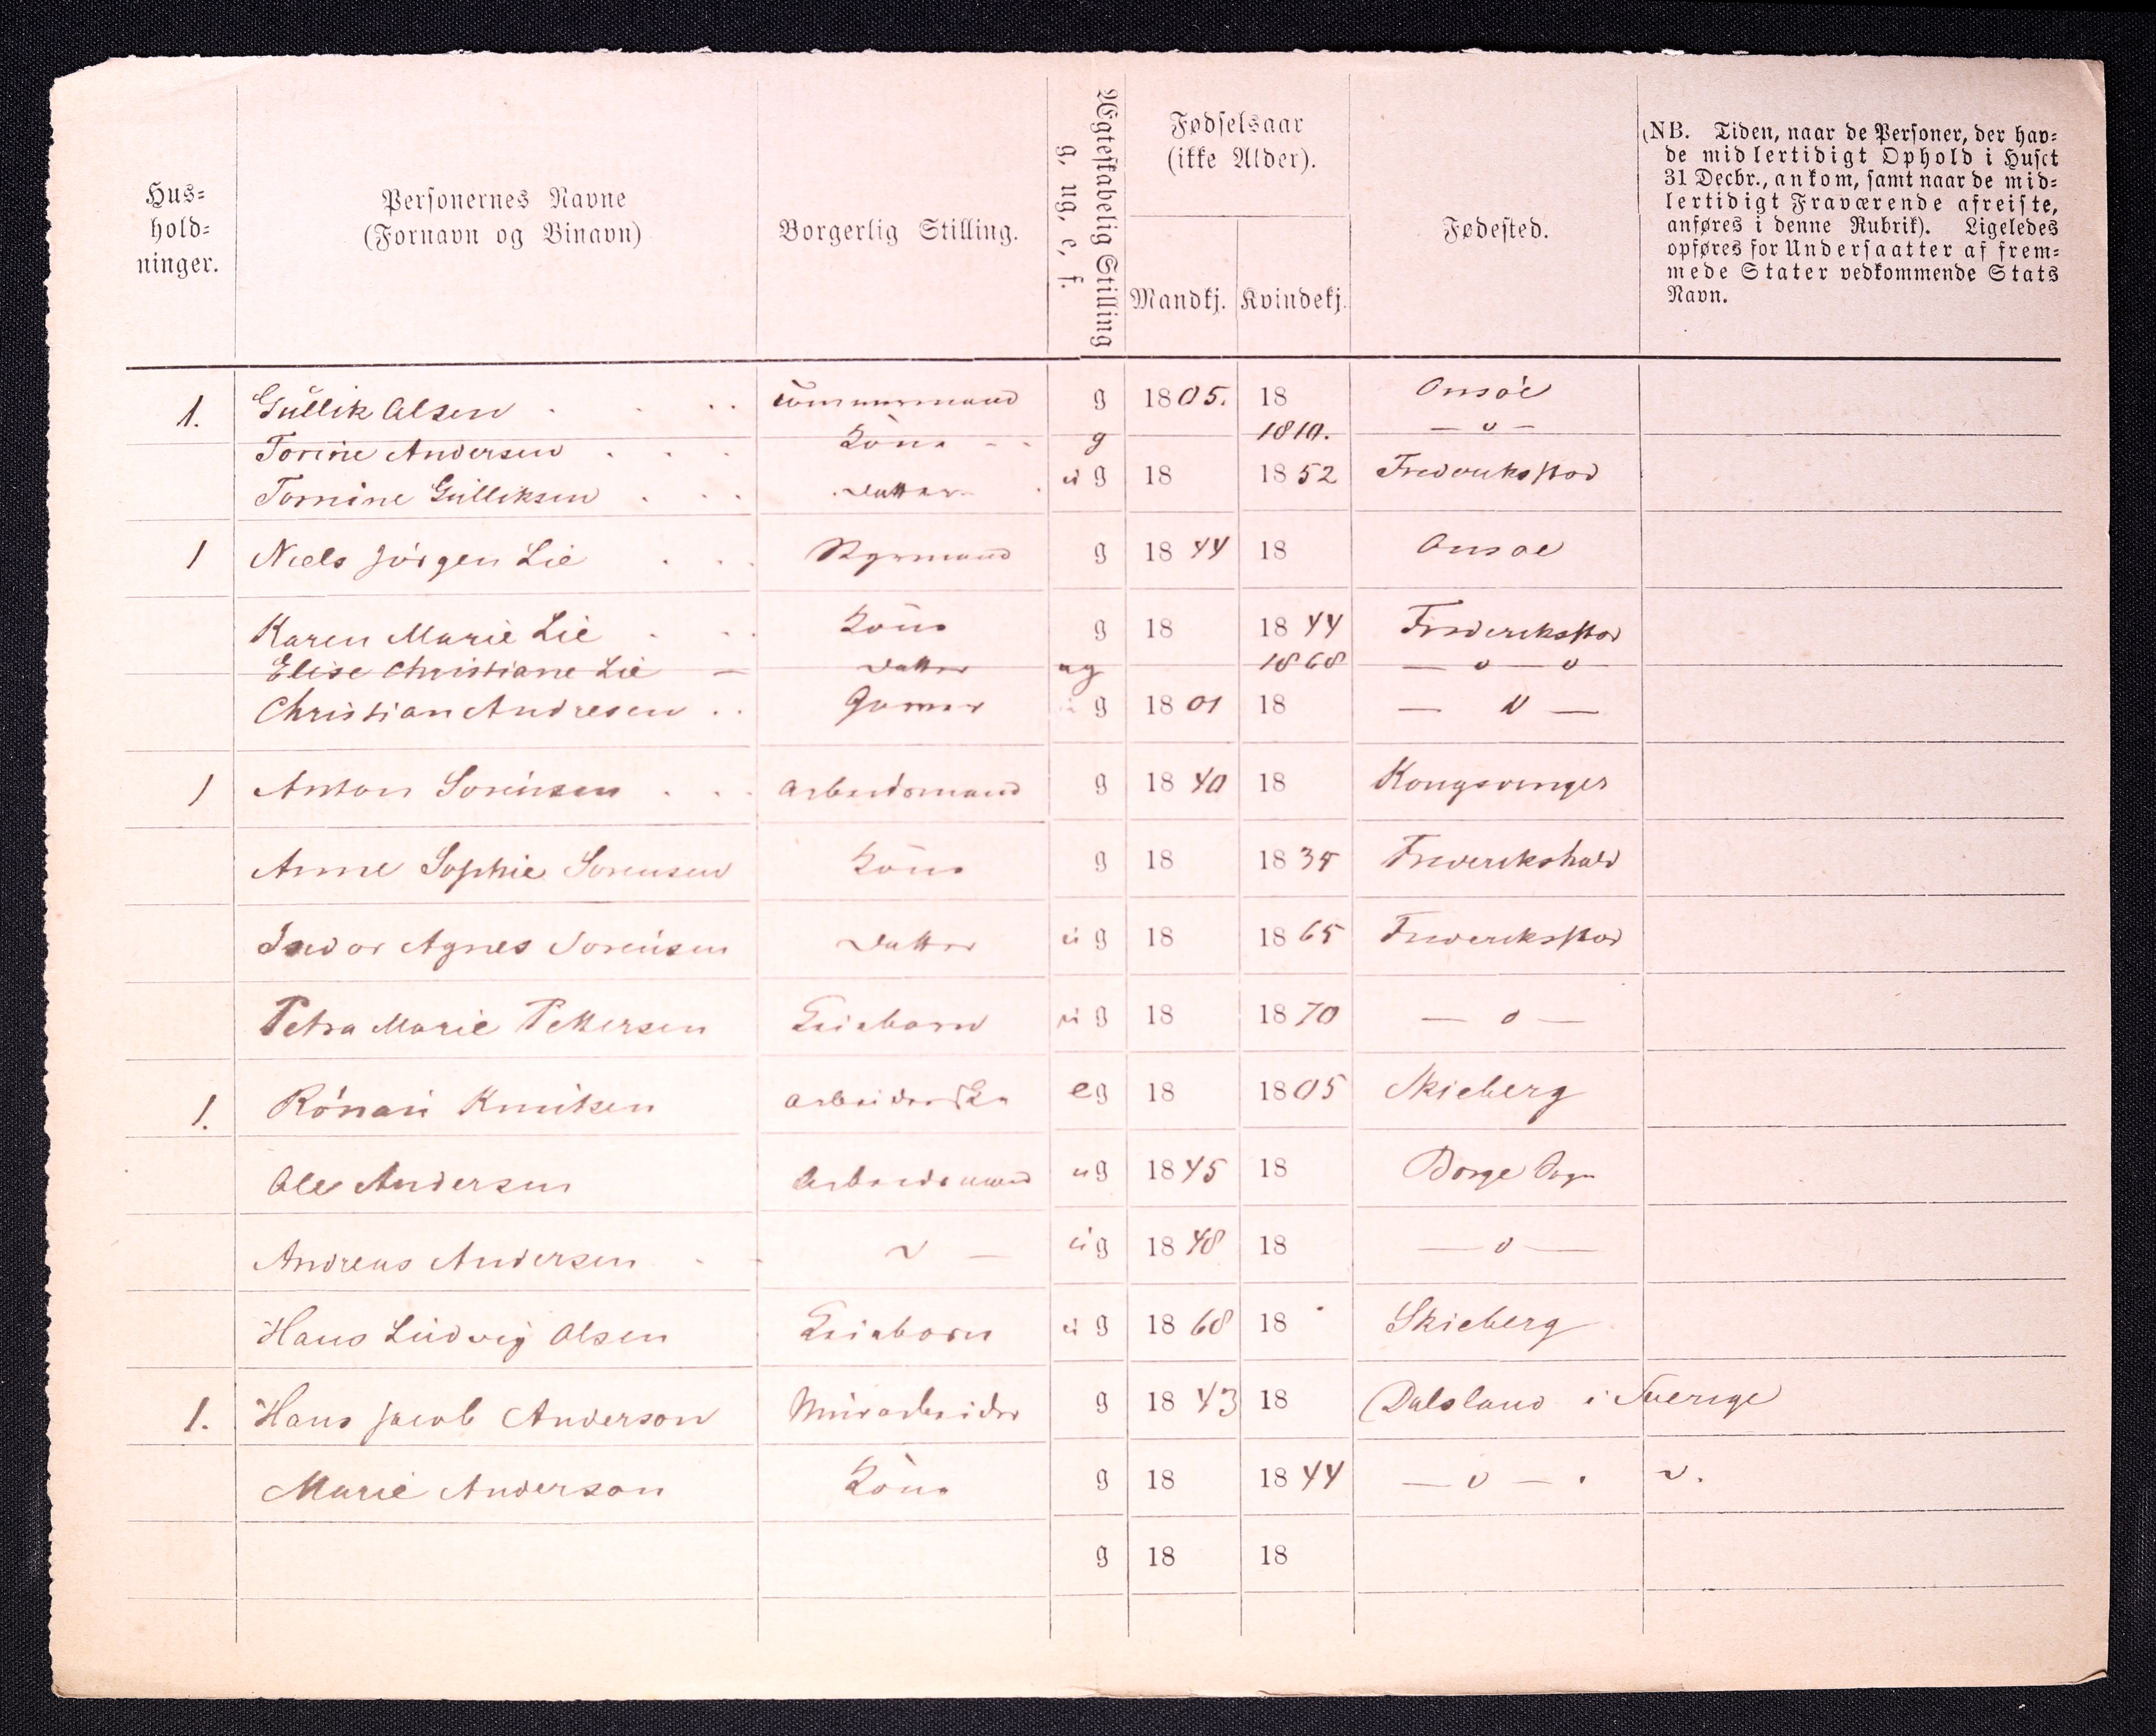 Hus-
hold-
ninger.
Personernes Navne
(Fornavn og Binavn)
Borgerlig Stilling.
Ægteskabelig Stilling
g, ug, e, f.
Fødselsaar
(ikke Alder).
Mandkj. Kvindekj.
Fødested.
(NB. Tiden, naar de Personer, der hav-
de midlertidigt Ophold i Huset
31 Decbr., ankom, samt naar de mid-
lertidigt Fraværende afreiste,
anføres i denne Rubrik). Ligeledes
opføres for Undersaatter af frem-
mede Stater vedkommende Stats
Navn.
1. Gullik Olsen Tømmermand g 1805. 18 Onsøe
Torine Andersen Kone g 1810. — " —
Tomine Gulliksen Datter ug 18 1852 Frederikstad
1 Niels Jörgen Lie Styrmand g 1844 18 Onsøe
Karen Marie Lie Kone g 18 1844 Frederikstad
Elise Christiane Lie — Datter ug 1868 — " — "
Christian Andresen g 1801 18 — " —
1 Anton Sorensen Arbeidsmand g 1840 18 Kongsvinger
Anne Sophie Sorensen Kone g 18 1835 Frederikshald
Agnes Sorensen Datter ug 18 1865 Frederikstad
Petra Marie Pettersen Leiebarn ug 18 1870 — " —
1. Knutsen Arbeiderske eg 18 1805 Skieberg
Ole Andersen Arbeidsmand ug 1845 18 Borge Sogn
Andreas Andersen " — ug 1848 18 — " —
Hans Ludvig Olsen Leiebarn ug 1868 18 Skieberg
1. Hans Jacob Anderson Murarbeider g 1843 18 Dalsland i Sverige
Marie Anderson Kone g 18 1844 — " — . ".
g 18 18